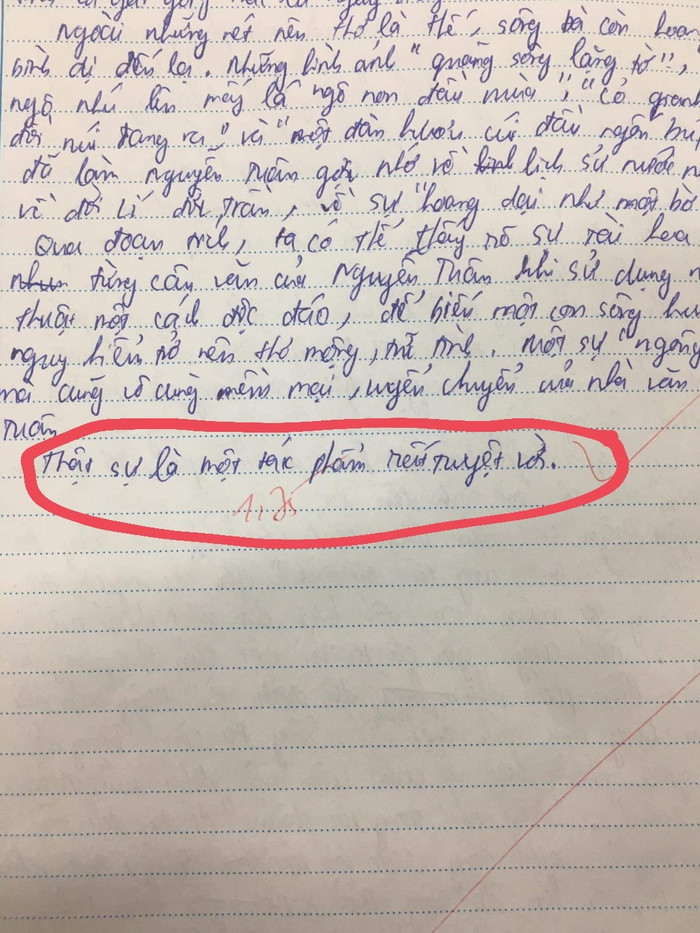 Ngoài những nét nên thơ là thế, sông Đà còn hoan
bình dị đến lạ. Những hình ảnh "quãng sông lặng tờ",
ngô nhú lên mấy lá ngô non đầu mùa", "cỏ gianh
đồi núi đang ra" và "một đàn hươu cúi đầu ngốn búp
đã làm Nguyễn Tuân gợi nhớ về lịch sử nước n
về đời Lí đời Trần, về sự "hoang dại như một bờ
Qua đoạn trích, ta có thể thấy rõ sự tài hoa
từng câu văn của Nguyễn Tuân khi sử dụng n
thuật một cách độc đáo, để biến một con sông hu
nguy hiểm trở nên thơ mộng, trữ tình. Một sự "ngông
mà cũng vô cùng mềm mại, uyển chuyển của nhà văn
Tuân
Thật sự là một tác phẩm rất tuyệt vời.
1,75